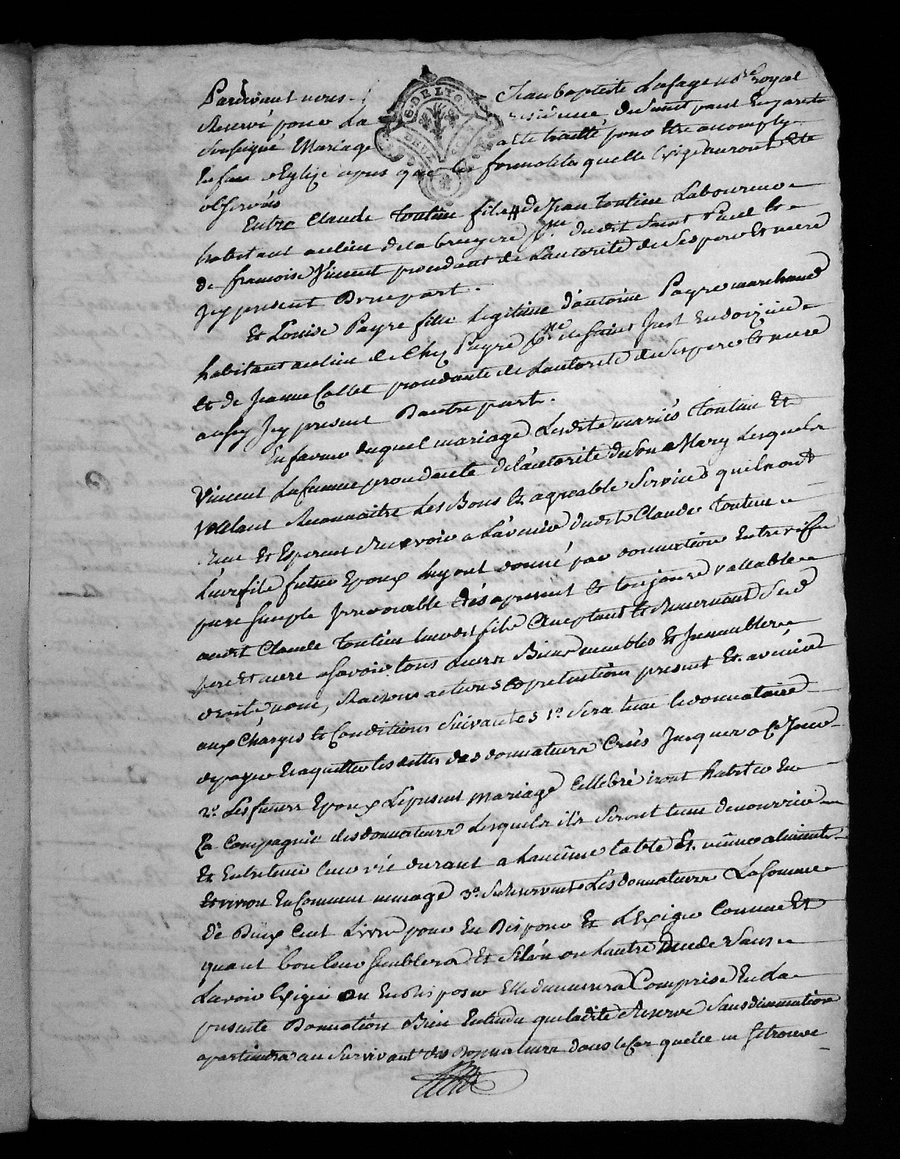 Pardevant nous Jean baptiste Lafage no.re royal
Reservé pour La residence du Saint paul En jarets
Soussigné Mariage a été traitté pour être accomply
En face d'Eglise apres que les formalités quelle Exige auront été
observés
Entre Claude toutin fils de Jean toutin Laboureur
habitant au lieu de la bruyere p.sse dudit Saint Paul &
de francoise Vincent procedant de L'autorité de Ses pere Et mere
Icy present D'une part.
Et Louise Payre fille Legitime d'antoine Payre marchand
habitant au lieu de Chez Payre p.sse de Saint Just En doizieu
et de Jeanne Collet procedante de L'autorité de Ses pere & mere
aussy Icy present D'autre part.
En faveur duquel mariage Lesdits mariés toutin Et
Vincent La femme procedante de l'autorité du Son Mary Lesquels
Voulant Reconnaître Les Bons & agreable Services quils ont
reçu Et Esperent Recevoir a L'avenir dudit Claude toutin
Leur fils futur Epoux luy ont donné par donnation Entre vifs
pure Simple Irrevocable des apresent & toujours vallable
audit Claude toutin leurdit fils acceptant & Remerciant Sesd
pere et mere a Savoir tous Leurs Biens meubles Et Immeubles
droits noms, Raisons actions & pretentions present Et avenir
aux Charges & Conditions Suivantes 1.o Sera tenu le donnataire
de payer & aquitter les dettes des donnateurs Créés Jusques a Ce Jour
2.o Les futurs Epoux Le present Mariage Cellebré iront habiter En
La Compagnie des donnateurs Lesquels ils Seront tenu de nourrir
Et Entretenir leur vie durant a La même table Et même aliments
Et vivre En Commun menage 3.o Se Reservent Les donnateurs La Somme
de Deux Cent Livre pour En Disposer Et L'Exiger Comme Et
quant bon leur Semblera Et Si l'un ou L'autre Decede Sans
L'avoir Exigée ou En Disposer Elle demeurera Comprise En La
presente Donnation Bien Entendu que ladite Reserve Sans diminution
apartiendra au Survivant des Donnateurs dans le Cas quelle se trouve